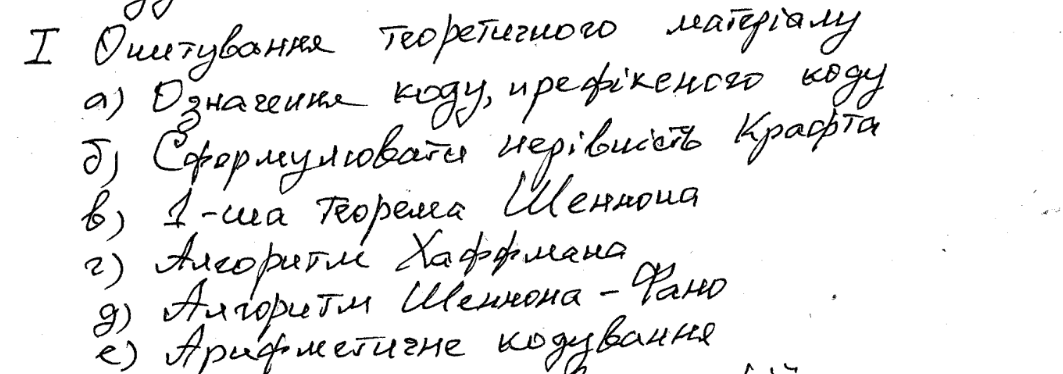 I Опитування теоретичного матеріалу
а) Означення коду, префіксного коду
б) Сформулювати нерівність Крафта
в) 1-ша теорема Шеннона
г) Алгоритм Хаффмана
д) Алгоритм Шеннона - Фано
е) Арифметичне кодування